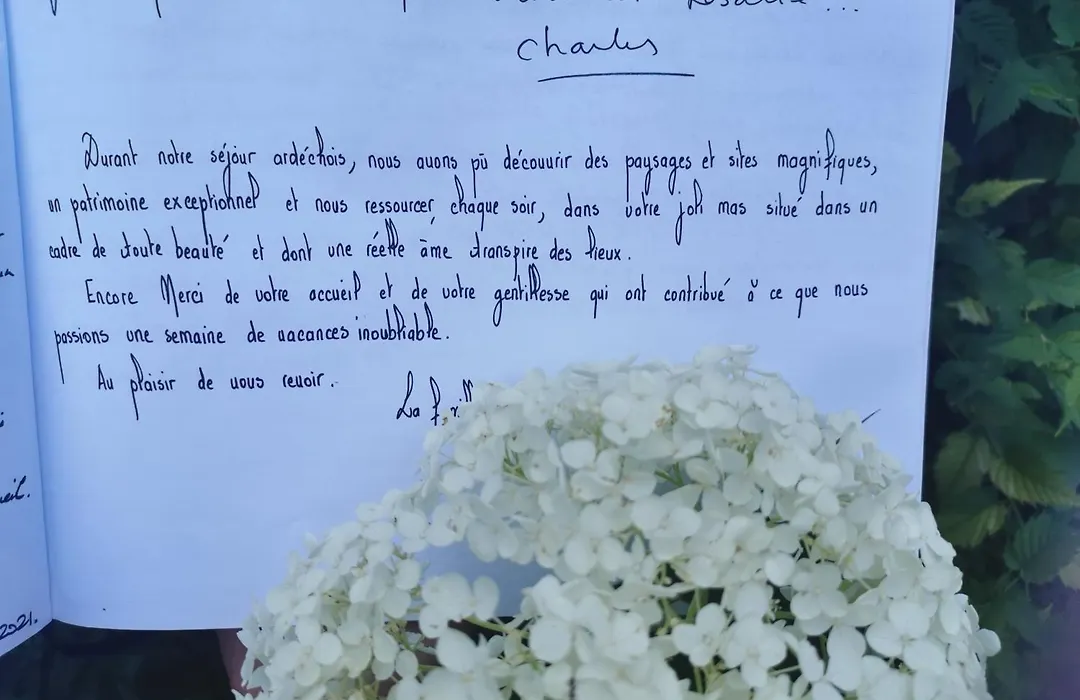 Charles
Durant notre séjour ardéchois, nous avons pû découvrir des paysages et sites magnifiques,
un patrimoine exceptionnel et nous ressourcer, chaque soir, dans votre joli mas situé dans un
cadre de toute beauté et dont une réelle âme transpire des lieux.
Encore Merci de votre accueil et de votre gentillesse qui ont contribué à ce que nous
passions une semaine de vacances inoubliable.
Au plaisir de vous revoir.
La
2021.